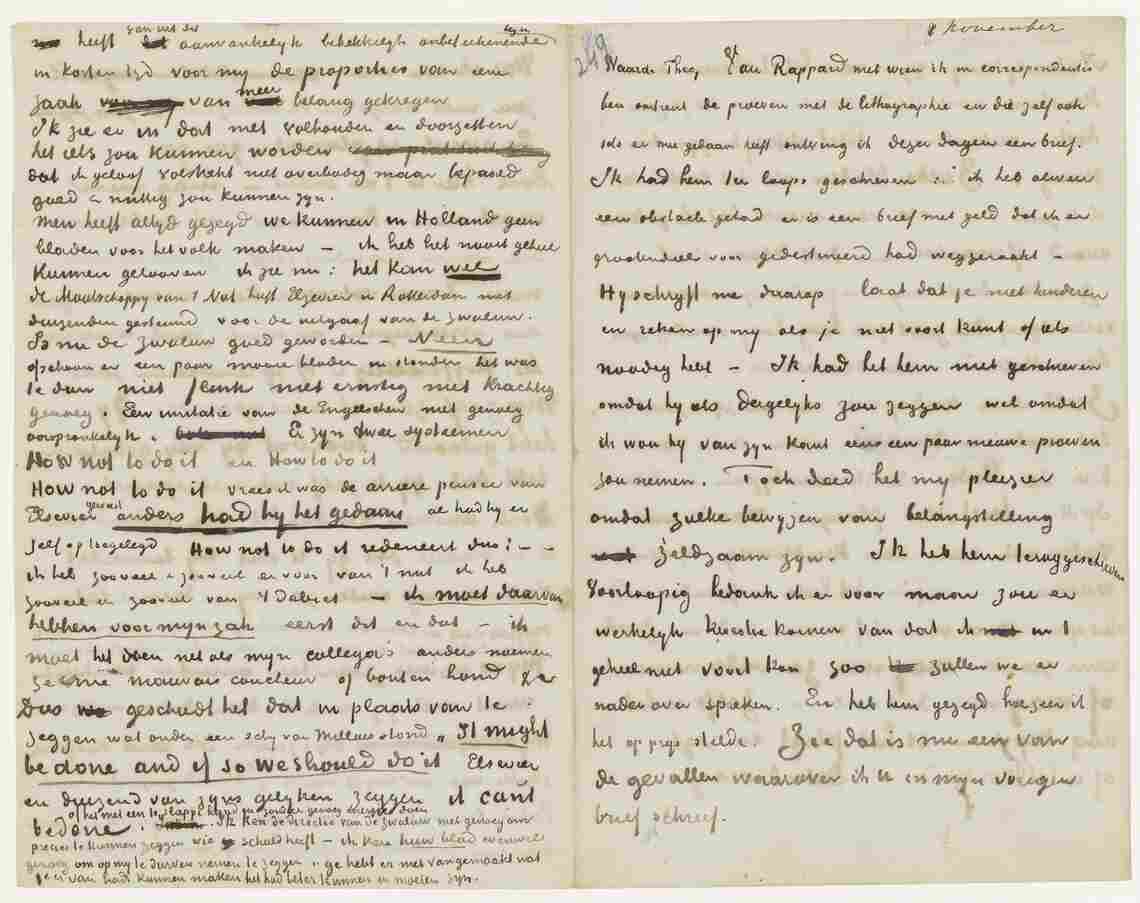 heeft van het dit aanvankelyk betrekkelyk onbeteekenende begin
in korten tyd voor my de proporties van eene
zaak van meer belang gekregen
Ik zie er in dat met volhouden en doorzetten
het iets zou kunnen worden
dat ik geloof volstrekt niet overbodig maar bepaald
goed & nuttig zou kunnen zyn.
Men heeft altyd gezegd we kunnen in Holland geen
bladen voor het volk maken – ik heb het nooit geheel
kunnen gelooven ik zie nu: het kan wel
de Maatschappy van 't Nut heeft Elsevier in Rotterdam met
duizenden gesteund voor de uitgaaf van de zwaluw.
Is nu de zwaluw goed geworden – Neen
ofschoon er een paar mooie bladen in stonden het was
te dun niet flink niet ernstig niet krachtig
genoeg. Een imitatie van de Engelschen niet genoeg
oorspronkelyk. Er zyn twee systeemen
How not to do it en How to do it
How not to do it vrees ik was de arriere pensee van
Elsevier geweest anders had hy het gedaan al had hy er
zelf op toegelegd How not to do it redeneert dus: – –
ik heb zooveel & zooveel er voor van 't nut ik heb
zooveel en zooveel van 't Debiet – ik moet daarvan
hebben voor mijn zak eerst dit en dat – ik
moet het doen net als myn collega's anders noemen
ze me mauvais coucheur of bonten hond &c
Dus geschiedt het dat in plaats van te
zeggen wat onder een schy van Millais stond „It might
be done and if so we should do it Elsevier
en duizend van zyns gelyken zeggen it cant
be done. of het met een
Ik ken de directie van de zwaluw niet genoeg om
precies te kunnen zeggen wie schuld heeft – ik ken hun blad evenwel
genoeg om op my te durven nemen te zeggen „ge hebt er niet van gemaakt wat
je er van hadt kunnen maken het had beter kunnen en moeten zyn.
8 November
249
Waarde Theo, Van Rappard met wien ik in correspondentie
ben omtrent de proeven met de lithographie en die zelf ook
iets er mee gedaan heeft ontving ik dezer dagen een brief.
Ik had hem ter loops geschreven: ik heb alweer
een obstacle gehad er is een brief met geld dat ik er
grootendeels voor gedestineerd had weggeraakt –
Hy schryft me daarop laat dat je niet hinderen
en reken op my als je niet voort kunt of iets
noodig hebt – Ik had het hem niet geschreven
omdat hy iets dergelyks zou zeggen wel omdat
ik wou hy van zyn kant eens een paar nieuwe proeven
zou nemen. Toch deed het my pleizier
omdat zulke bewyzen van belangstelling
zeldzaam zyn. Ik heb hem teruggeschreven
Voorloopig bedank ik er voor maar zou er
werkelyk kwestie komen van dat ik in 't
geheel niet voort kon zoo zullen we er
nader over spreken. En heb hem gezegd hoezeer ik
het op prys stelde. Zie dat is nu een van
de gevallen waarover ik U in myn vorigen
brief schreef.